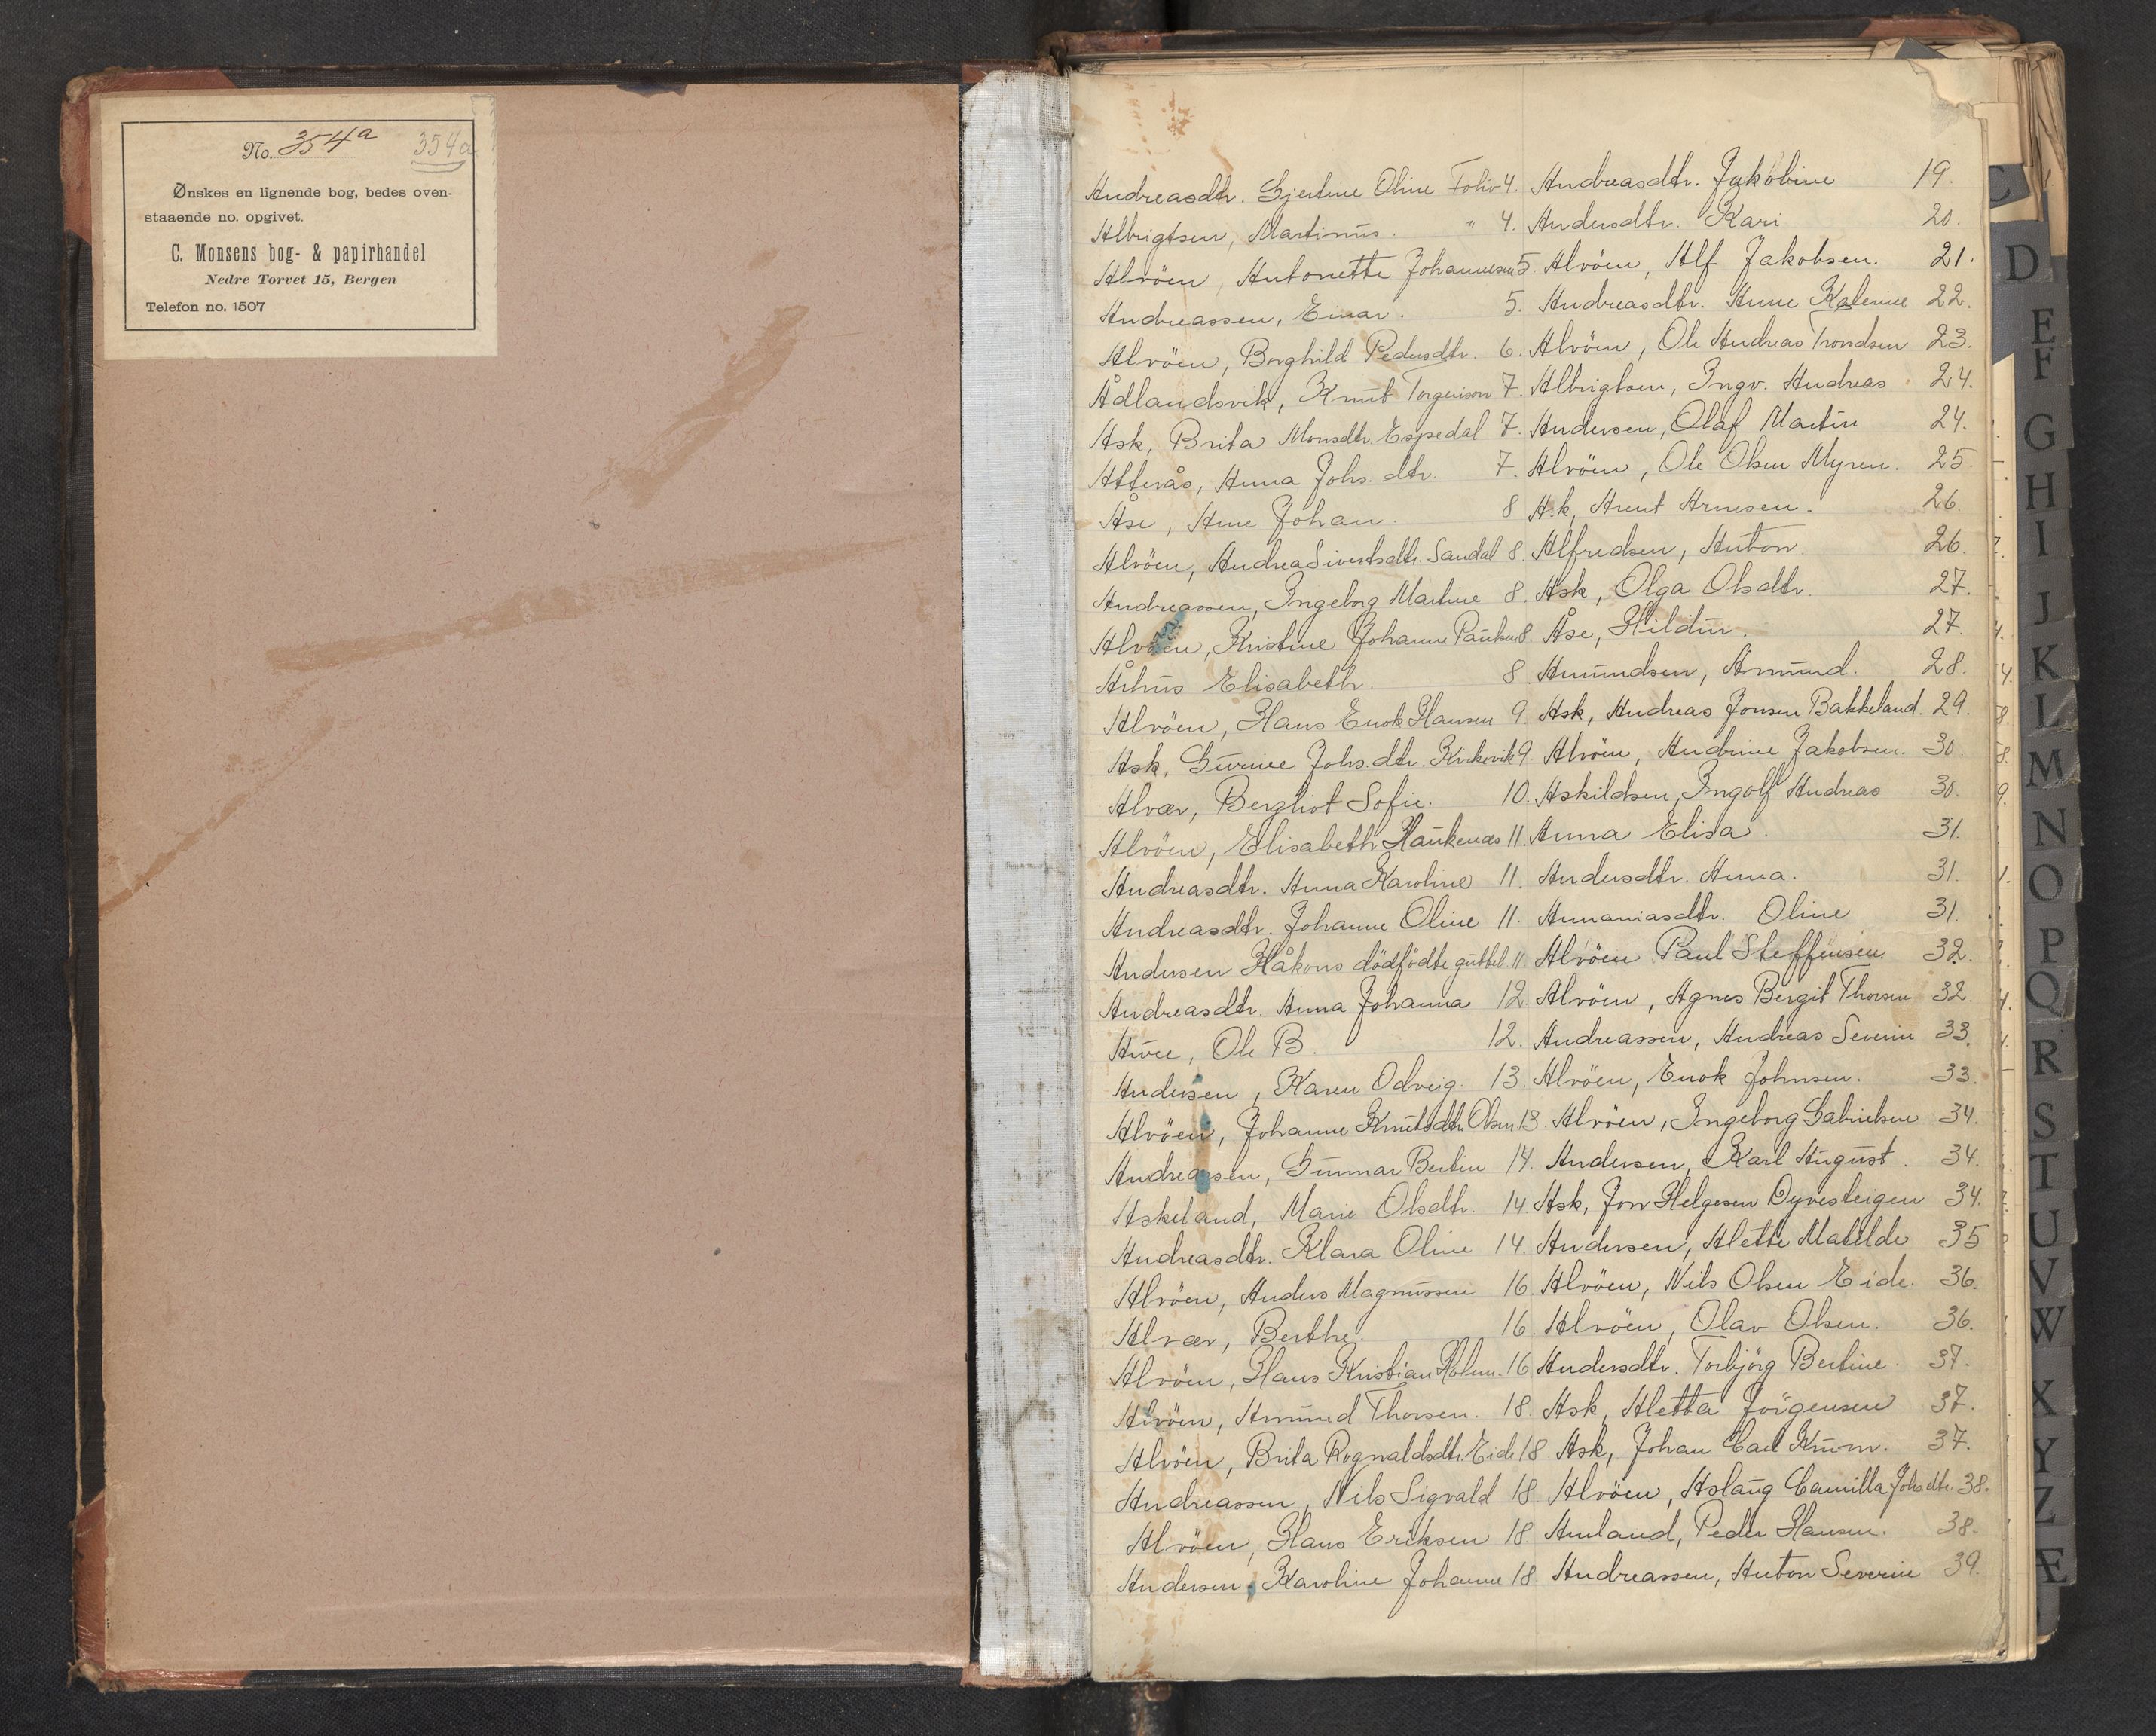 No. 354a 354a
Ønskes en lignende bog, bedes oven-
staaende no. opgivet.
C. Monsens bog- & papirhandel
Nedre Torvet 15, Bergen
Telefon no. 1507
Andreasdtr. Gjertine Oline Folio 4.
Albrigtsen, Martinus. " 4.
Alvöen, Antonette Johannesen 5.
Andreassen, Einar. 5.
Alvöen, Borghild Pedersdtr. 6.
Ådlandsvik, Knut Torgeirson 7.
Ask, Brita Monsdtr. Espedal 7.
Atterås, Anna Johs. dtr. 7.
Åse, Arne Johan. 8
Alvöen, Andrea Sivertsdtr. Sandal 8.
Andreassen, Ingeborg Martine 8.
Alvöen, Kristine Johanne Paulsen 8.
Århus Elisabeth. 8
Alvöen, Hans Enok Hansen 9.
Ask, Gurine Johs. dtr. 9.
Alvær, Bergliot Sofie. 10.
Alvöen, Elisabeth Haukenæs 11.
Andreasdtr. Anna Karoline 11.
Andreasdtr. Johanne Oline 11.
Andersen Håkons dödfödte gutteb 11
Andreasdtr. Anna Johanna 12.
Ole B. 12.
Andersen, Karen Odveig. 13.
Alvöen, Johanne Knutsdtr. Olsen 13.
Andreassen, Gunnar Bertin 14.
Askeland, Marie Olsdtr. 14.
Andreasdtr. Klara Oline 14.
Alvöen, Anders Magnussen 16.
Alvær, Berthe. 16.
Alvöen, Hans Kristian Holm. 16.
Alvöen, Amund Thorsen. 18.
Alvöen, Brita Rognaldsdtr. Eide 18
Andreassen, Nils Sigvald 18
Alvöen, Hans Eriksen 18.
Andersen, Karoline Johanne 18.
Andreasdtr. Jakobine 19.
Andersdtr. Kari 20.
Alvöen, Alf Jakobsen. 21.
Andreasdtr. Anne Katerine 22.
Alvöen, Ole Andreas Trondsen 23.
Albrigtsen, Ingv. Andreas 24.
Andersen, Olaf Martin 24.
Alvöen, Ole Olsen Myren. 25.
Ask, Arent Arnesen. 26.
Alfredsen, Anton. 26.
Ask, Olga Olsdtr. 27.
Åse, Hildur. 27.
Amundsen, Amund. 28.
Ask, Andreas Jonsen Bakkeland. 29.
Alvöen, Andrine Jakobsen. 30.
Askildsen, Ingolf Andreas 30.
Anna Elisa. 31.
Andersdtr. Anna. 31.
Annaniasdtr. Oline 31.
Alvöen Paul Steffensen 32.
Alvöen, Agnes Bergit Thorsen 32.
Andreassen, Andreas Severin 33.
Alvöen, Enok Johnsen. 33.
Alvöen, Ingeborg Gabrielsen 34.
Andersen, Karl August. 34.
Ask, Jon Helgesen Dyvesteigen 34.
Andersen, Alette Matilde 35
Alvöen, Nils Olsen Eide. 36.
Alvöen, Olav Olsen. 36.
Andersdtr. Torbjörg Bertine. 37.
Ask, Aletta Jörgensen 37.
Ask, Johan Carl Krum. 37.
Alvöen, Aslaug Camilla Johs dtr. 38.
Peder Hansen. 38.
Andreassen, Anton Severin 39.
C
D
E
F
G
H
I
J
K
L
M
N
O
P
Q
R
S
T
U
V
W
X
Y
Z
Æ